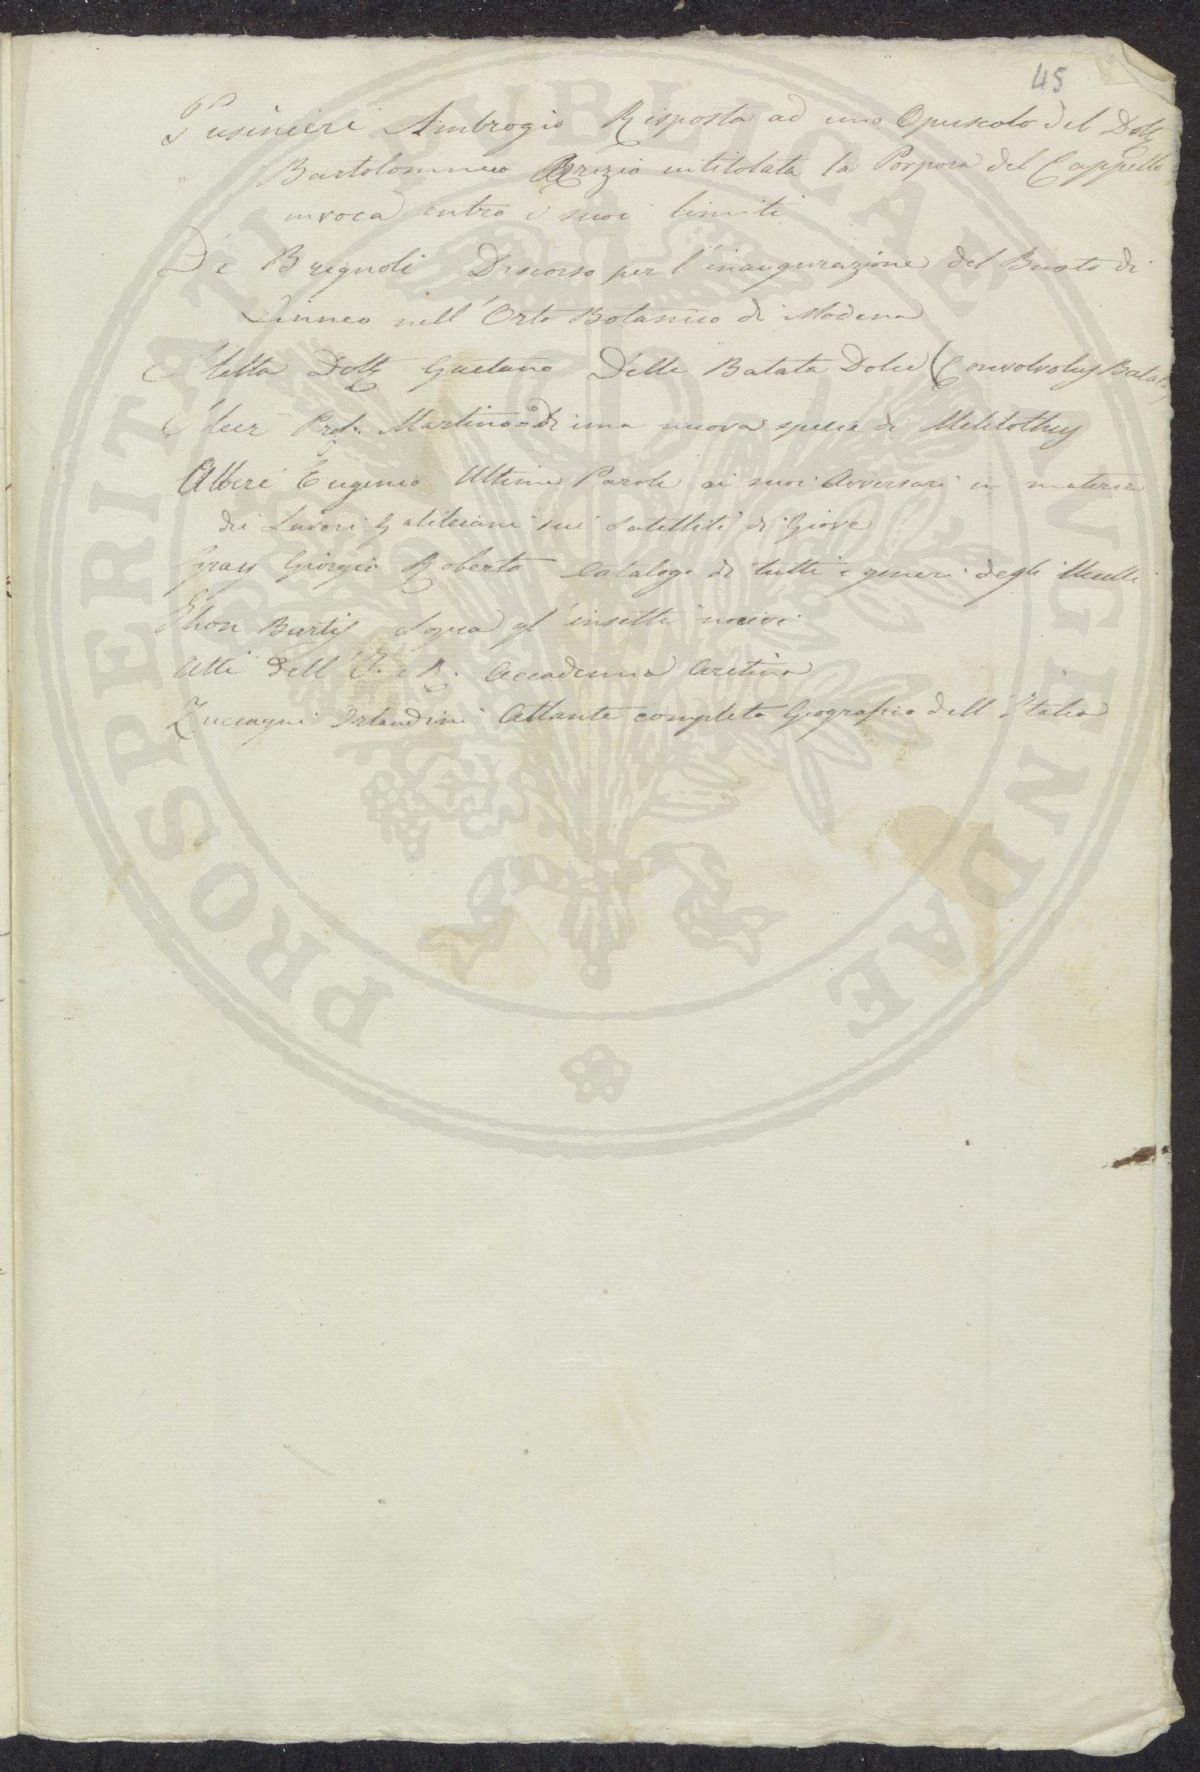 45
Fusinieri Ambrogio Risposta ad uno Opuscolo del Dott
Bartolommeo Brizio intitolata la Porpora del Cappello
entro i suoi limiti
De Brignoli Discorso per l'inaugurazione del Busto di
Linneo nell'Orto Botanico di Modena
Stella Dott Gaetano Della Batata Dolce (Convolvolus Batatas
Prof. Martino Di una nuova specie di
Alberi Eugenio Ultime Parole ai suoi Avversari in materia
dei Lavori Galileiani sui Satelliti di Giove
Gray Giorgio Roberto Catalogo di tutti i generi degli Uccelli
Burtis Sopra gl'insetti nocivi
Atti dell'I. e R. Accademia Aretina
Zuccagni Orlandini Atlante completo Geografico dell'Italia
PROSPERITATI PUBLICAE AUGENDAE